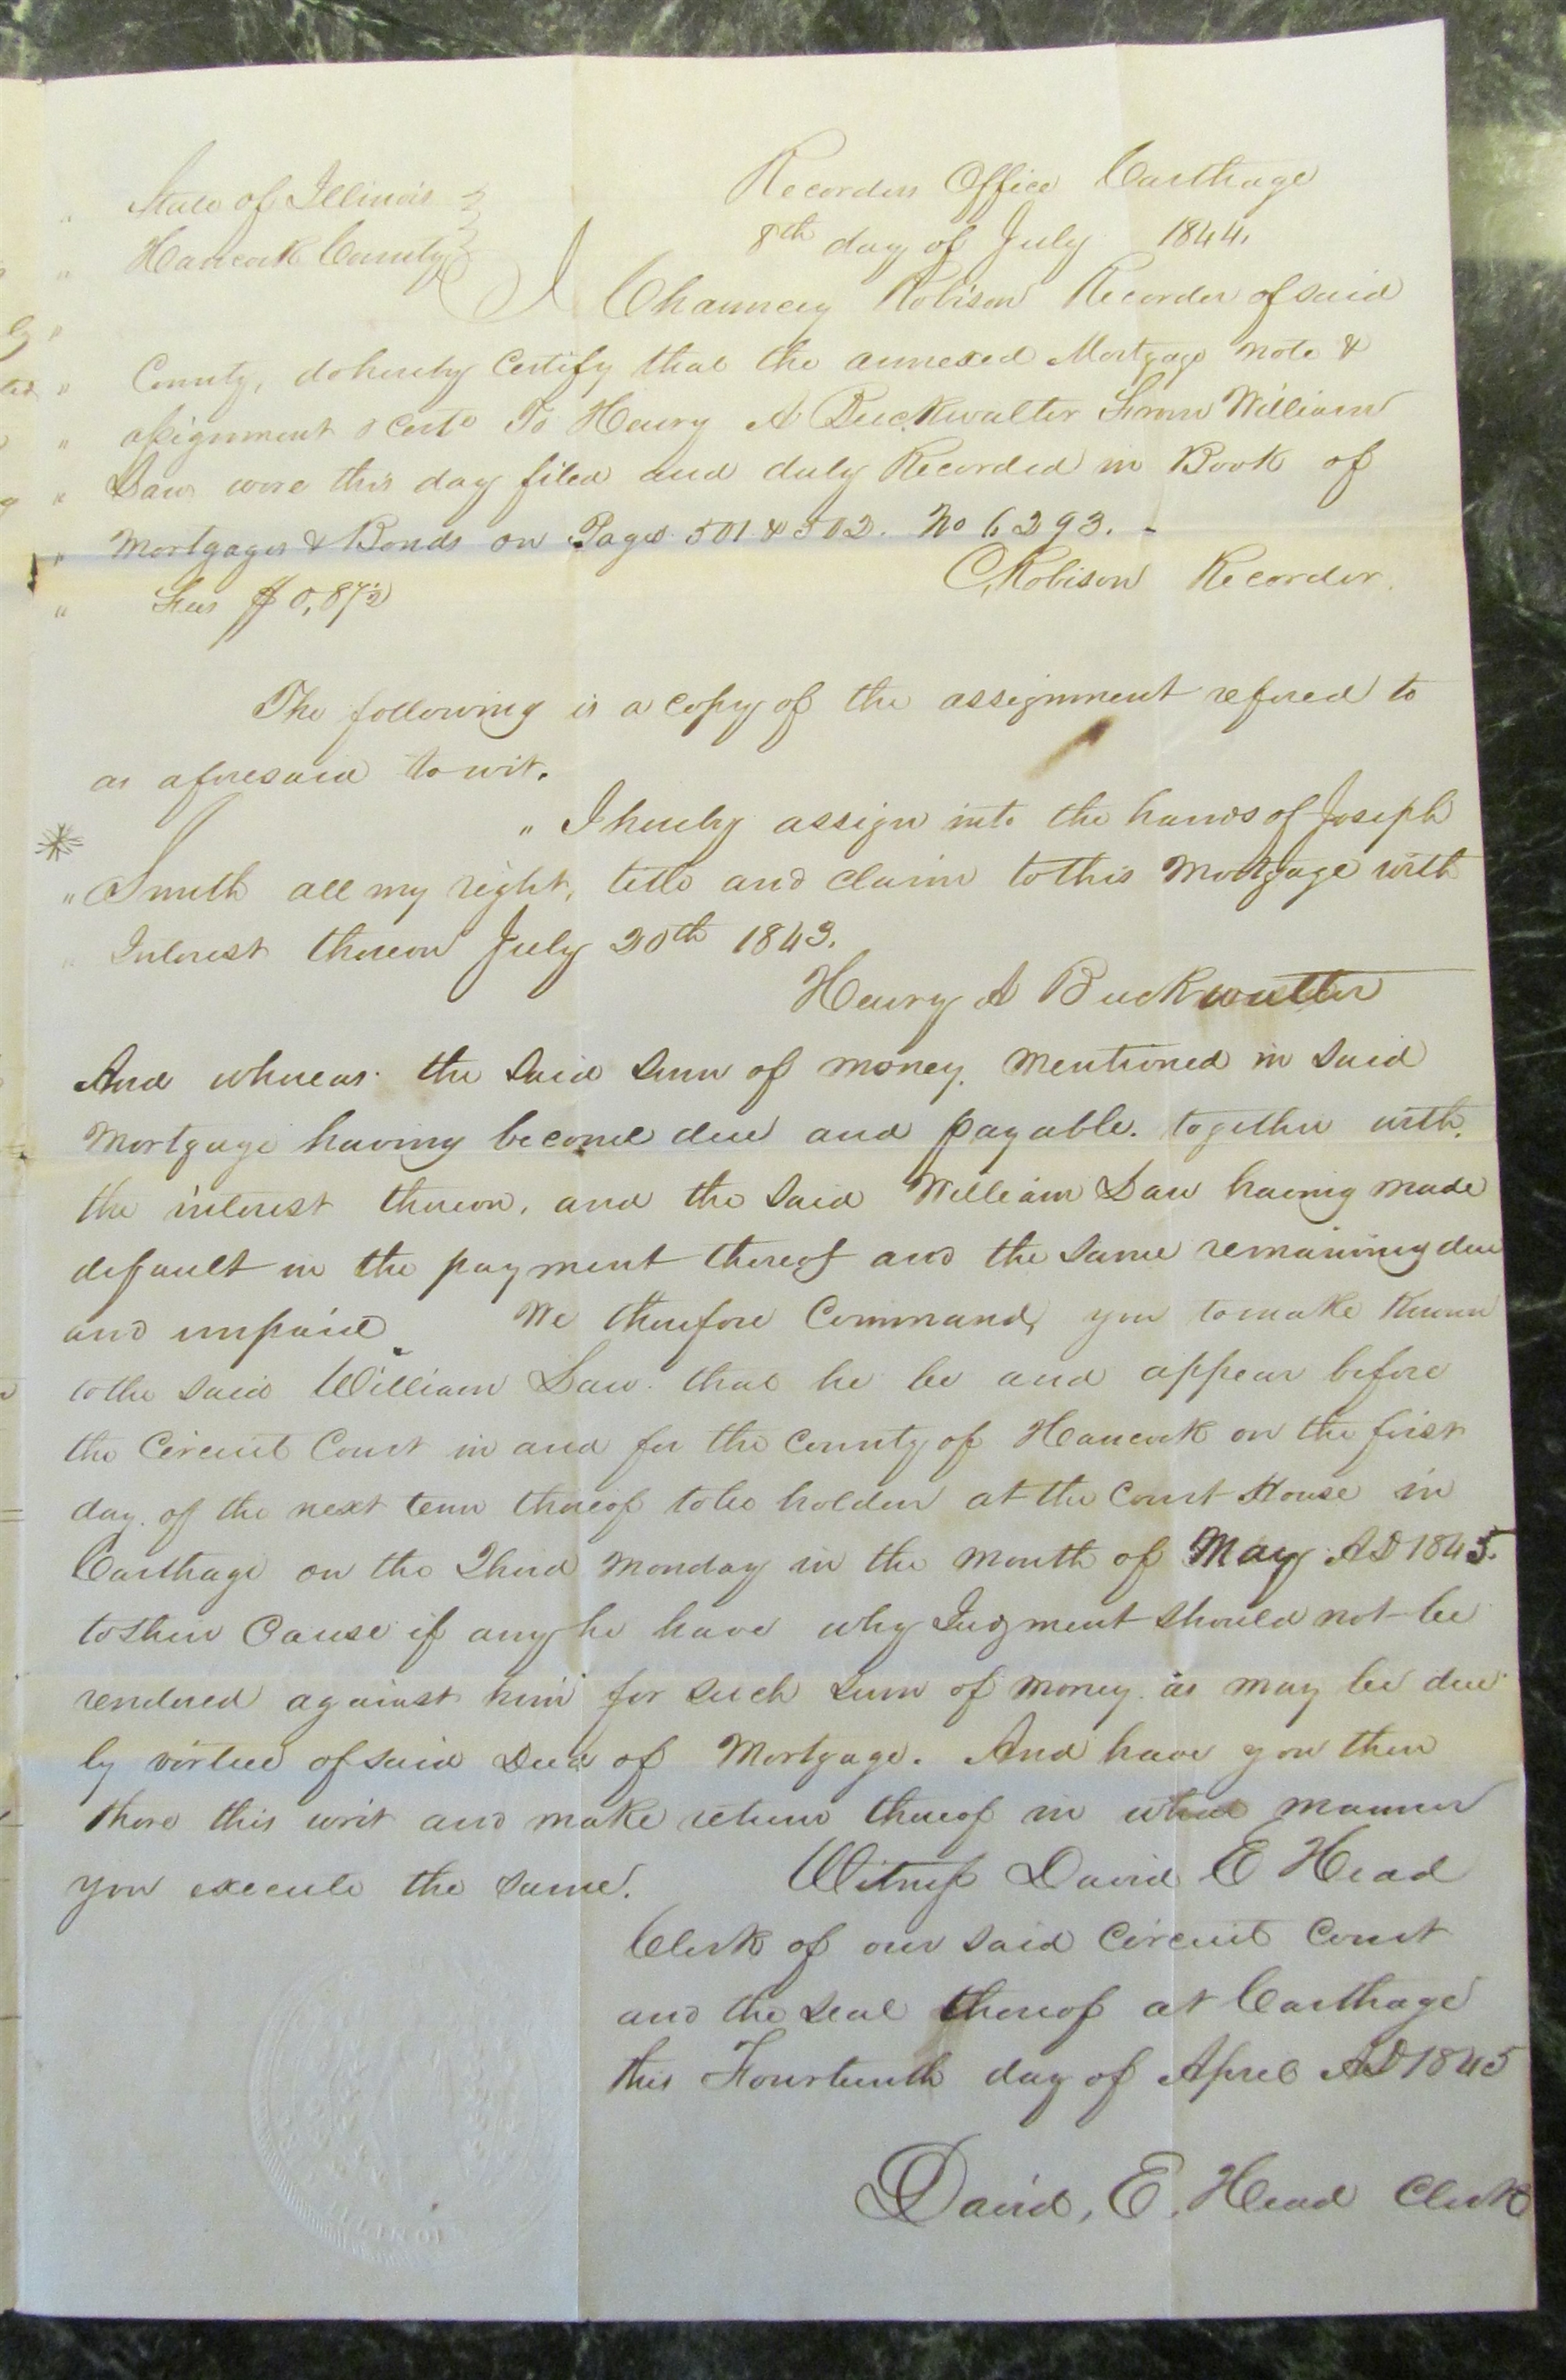 " State of Illinois } Recorders Office Carthage
" Hancock County } 8th day of July 1844.
I Chauncey Robison Recorder of said
" County, do hereby Certify that the annexed Mortgage note &
" assignment & Certe To Henry A Buckwalter From William
" Law were this day filed and duly Recorded in Book of
" Mortgages & Bonds on Pages 501 & 502. No 6293. -
C, Robison Recorder.
" Fees $0,87½
The following is a copy of the assignment refered to
as aforesaid to wit.
" I hereby assign into the hands of Joseph
" Smith all my right, title and claim to this Mortgage with
" Interest thereon July 20th 1843.
Henry A Buckwalter
And whereas the said sum of money mentioned in said
Mortgage having become due and payable. together with.
the interest thereon, and the said William Law having made
default in the payment thereof and the same remaining due
and unpaid We therefore Command, you to make known
to the said William Law that he be and appear before
the Circuit Court in and for the County of Hancock on the first
day of the next term thereof to be holden at the Court House in
Carthage on the Third Monday in the month of May AD 1845.
to shew Cause if any he have why Judgment should not be
rendered against him for such sum of money as may be due
by virtue of said Deed of Mortgage. And have you then
there this writ and make return thereof in what manner
you execute the same. Witness David E Head
Clerk of our said Circuit Court
and the seal thereof at Carthage
this Fourteenth day of April AD 1845
David, E. Head Clerk
ILLINOIS